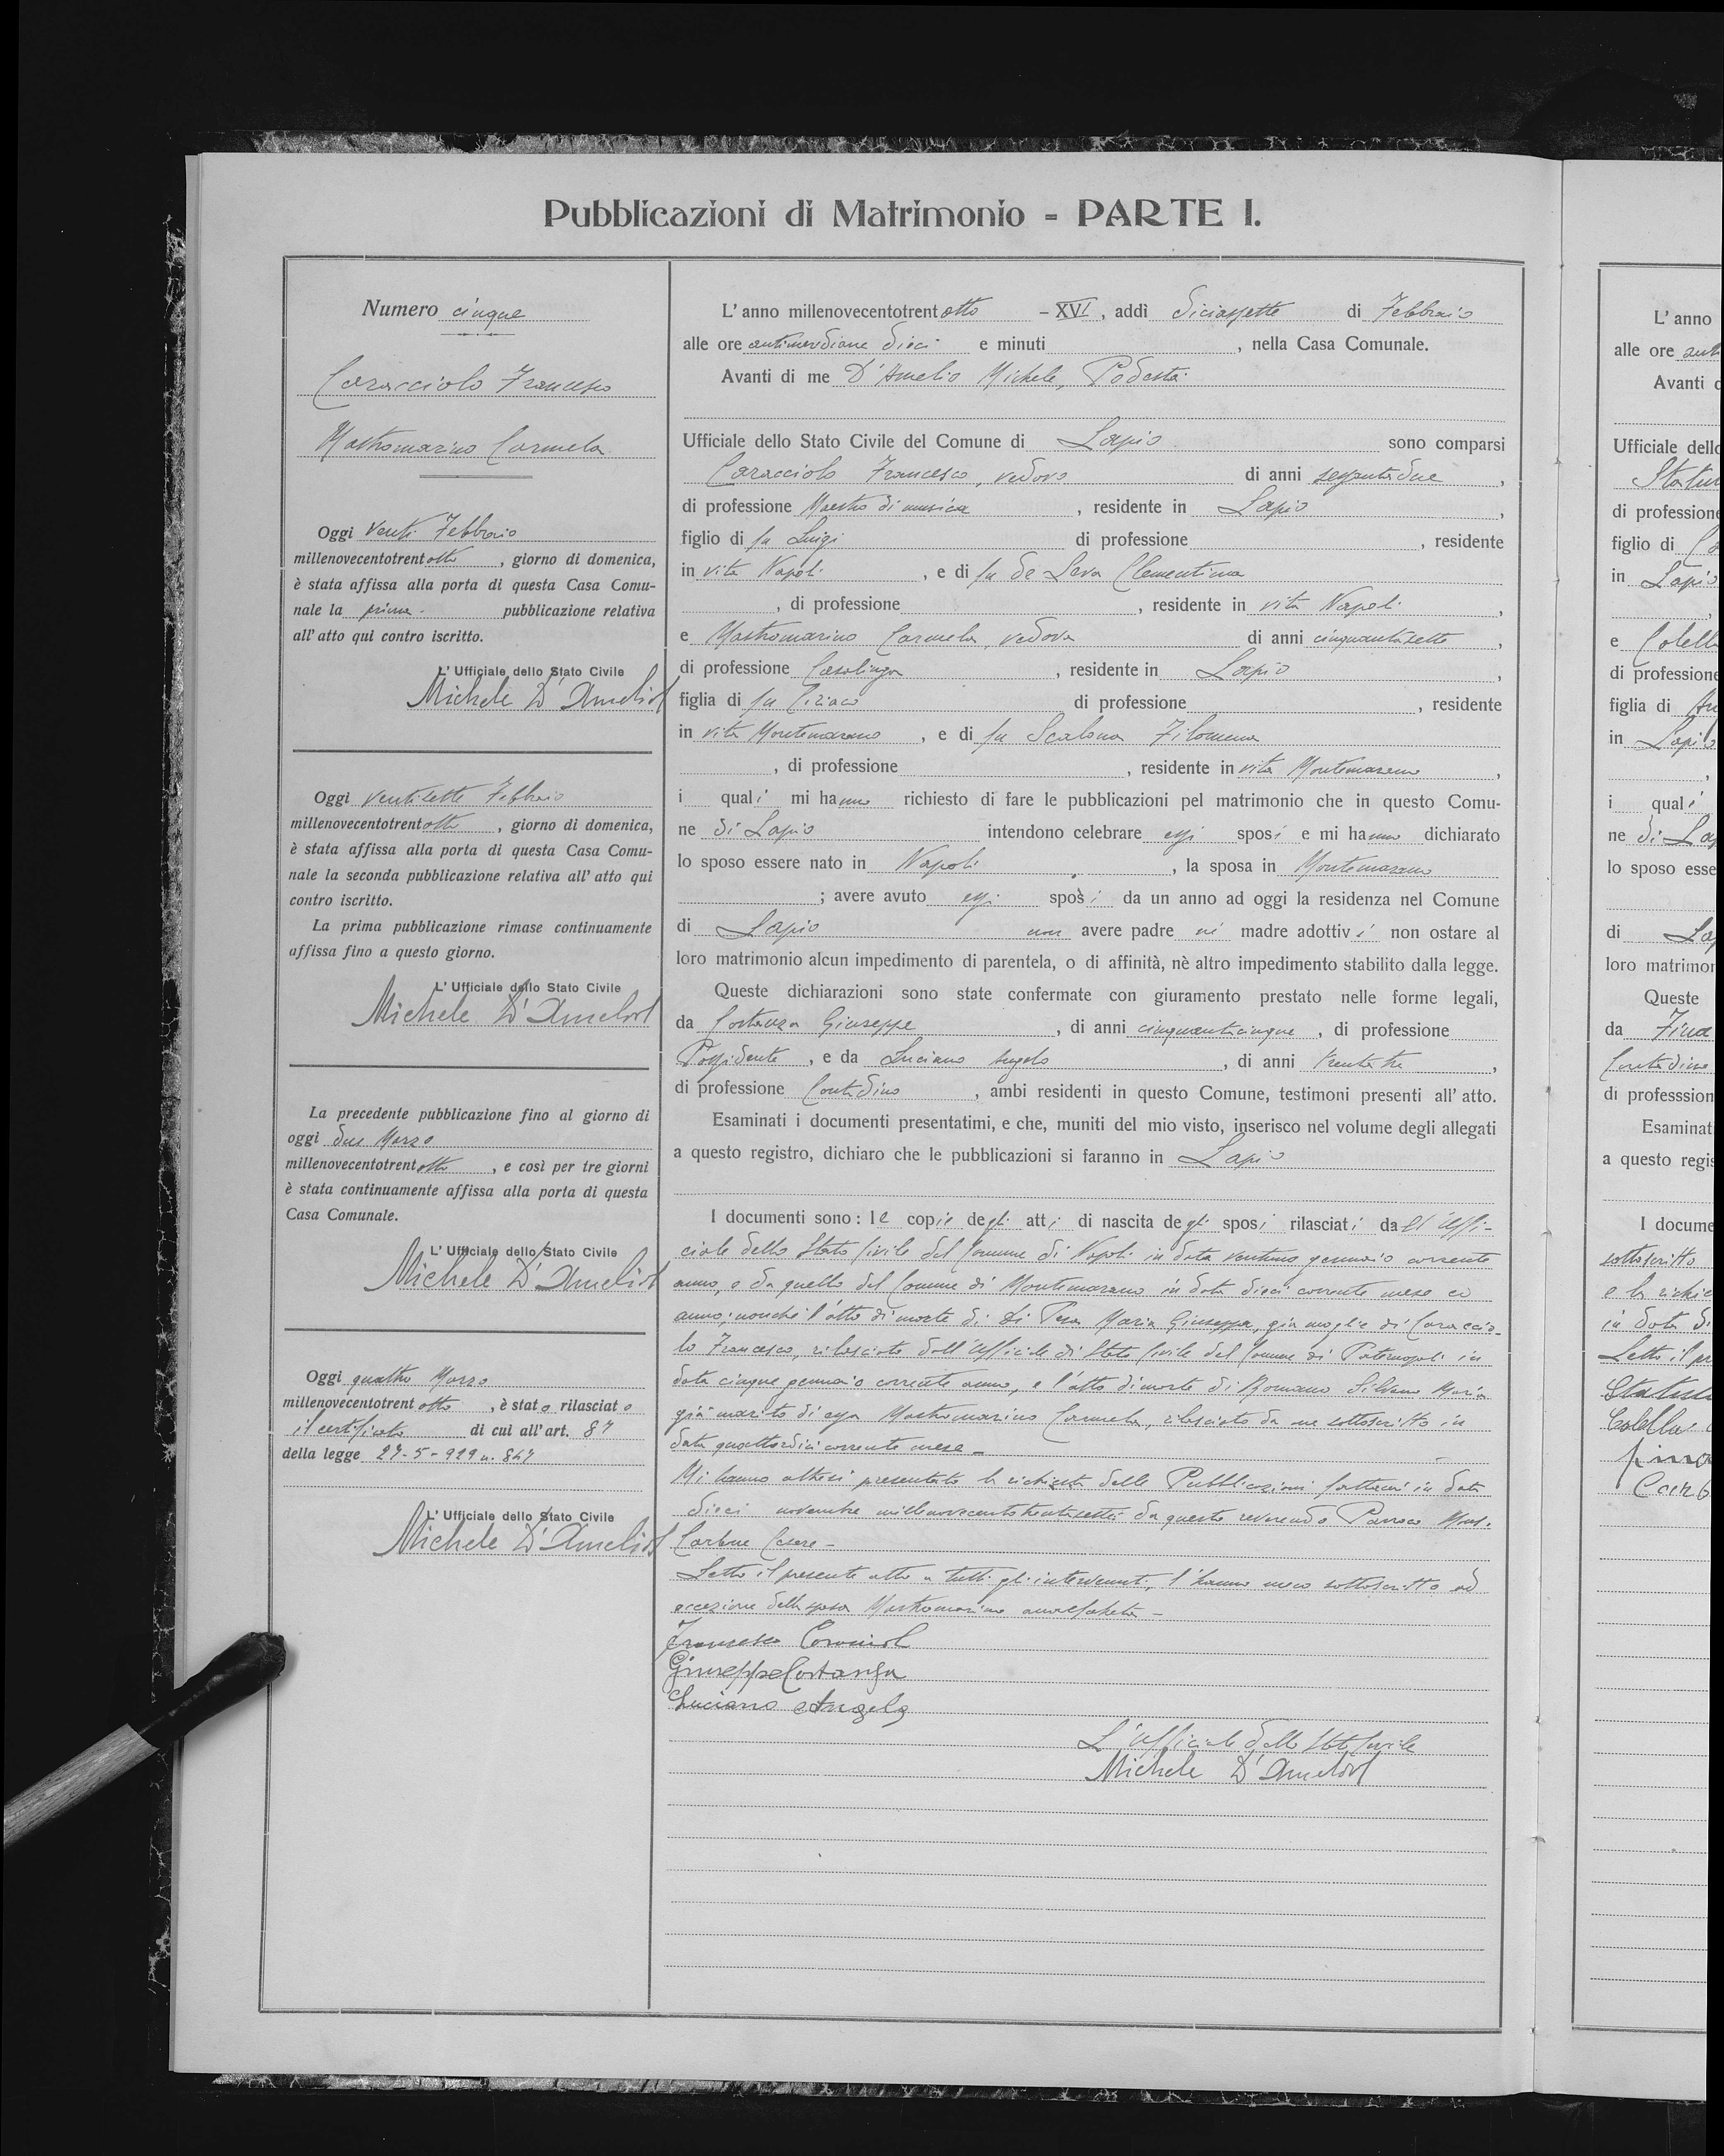 Pubblicazioni di Matrimonio - PARTE I.
Numero cinque
Caracciolo Francesco
Mastromarino Carmela
Oggi venti Febbraio
millenovecentotrentotto, giorno di domenica,
è stata affissa alla porta di questa Casa Comu-
nale la prima pubblicazione relativa
all'atto qui contro iscritto.
L'Ufficiale dello Stato Civile
Michele D'Amelio
Oggi ventisette Febbraio
millenovecentotrentotto, giorno di domenica,
è stata affissa alla porta di questa Casa Comu-
nale la seconda pubblicazione relativa all'atto qui
contro iscritto.
La prima pubblicazione rimase continuamente
affissa fino a questo giorno.
L'Ufficiale dello Stato Civile
Michele D'Amelio
La precedente pubblicazione fino al giorno di
oggi due Marzo
millenovecentotrentotto, e così per tre giorni
è stata continuamente affissa alla porta di questa
Casa Comunale.
L'Ufficiale dello Stato Civile
Michele D'Amelio
Oggi quattro Marzo
millenovecentotrentotto, è stato rilasciato
il certificato di cui all'art. 87
della legge 27-5-929 n. 847
L'Ufficiale dello Stato Civile
Michele D'Amelio
L'anno millenovecentotrentotto - XVI, addì diciassette di Febbraio
alle ore antimeridiane dieci e minuti , nella Casa Comunale.
Avanti di me D'Amelio Michele, Podestà
Ufficiale dello Stato Civile del Comune di Lapio sono comparsi
Caracciolo Francesco, vedovo di anni sessantadue,
di professione Maestro di musica, residente in Lapio,
figlio di fu Luigi di professione , residente
in vita Napoli, e di fu de Leva Clementina
, di professione , residente in vita Napoli,
e Mastromarino Carmela, vedova di anni cinquantasette,
di professione Casalinga, residente in Lapio,
figlia di fu Ciriaco di professione , residente
in vita Montemarano, e di fu Scalona Filomena
, di professione , residente in vita Montemarano,
i quali mi hanno richiesto di fare le pubblicazioni pel matrimonio che in questo Comu-
ne di Lapio intendono celebrare essi sposi e mi hanno dichiarato
lo sposo essere nato in Napoli, la sposa in Montemarano
; avere avuto essi sposi da un anno ad oggi la residenza nel Comune
di Lapio non avere padre nè madre adottivi non ostare al
loro matrimonio alcun impedimento di parentela, o di affinità, nè altro impedimento stabilito dalla legge.
Queste dichiarazioni sono state confermate con giuramento prestato nelle forme legali,
da Costanza Giuseppe, di anni cinquantacinque, di professione
Possidente, e da Luciano Angelo, di anni trentatre,
di professione Contadino, ambi residenti in questo Comune, testimoni presenti all'atto.
Esaminati i documenti presentatimi, e che, muniti del mio visto, inserisco nel volume degli allegati
a questo registro, dichiaro che le pubblicazioni si faranno in Lapio
I documenti sono: le copie degli atti di nascita degli sposi rilasciati dall'Uffi-
ciale dello Stato Civile del Comune di Napoli in data ventuno gennaio corrente
anno, e da quello del Comune di Montemarano in data dieci corrente mese ed
anno; nonché l'atto di morte di di Pesa Maria Giuseppa, già moglie di Caraccio-
lo Francesco, rilasciato dall'Ufficiale di Stato Civile del Comune di Paternopoli in
data cinque gennaio corrente anno, e l'atto di morte di Romano Silvano Maria
già marito di essa Mastromarino Carmela, rilasciato da me sottoscritto in
data quattordici corrente mese -
Mi hanno altresì presentato la richiesta delle Pubblicazioni fattami in data
dieci novembre millenovecentotrentasette da questo reverendo Parroco Mons.
Carbone Cesare -
Letto il presente atto a tutti gli intervenuti, l'hanno meco sottoscritto ad
eccezione della sposa Mastromarino analfabeta -
Francesco
Giuseppe Costanza
Luciano Angelo
L'Ufficiale dello Stato Civile
Michele D'Amelio
L'anno
alle ore
Avanti
Ufficiale dello
di professione
figlio di
in Lapio
e
di professione
figlia di
in Lapio
i quali
ne di
lo sposo esse
di
loro matrimon
Queste
da
di professsion
Esaminat
a questo regis
I docume
sottoscritto
in data